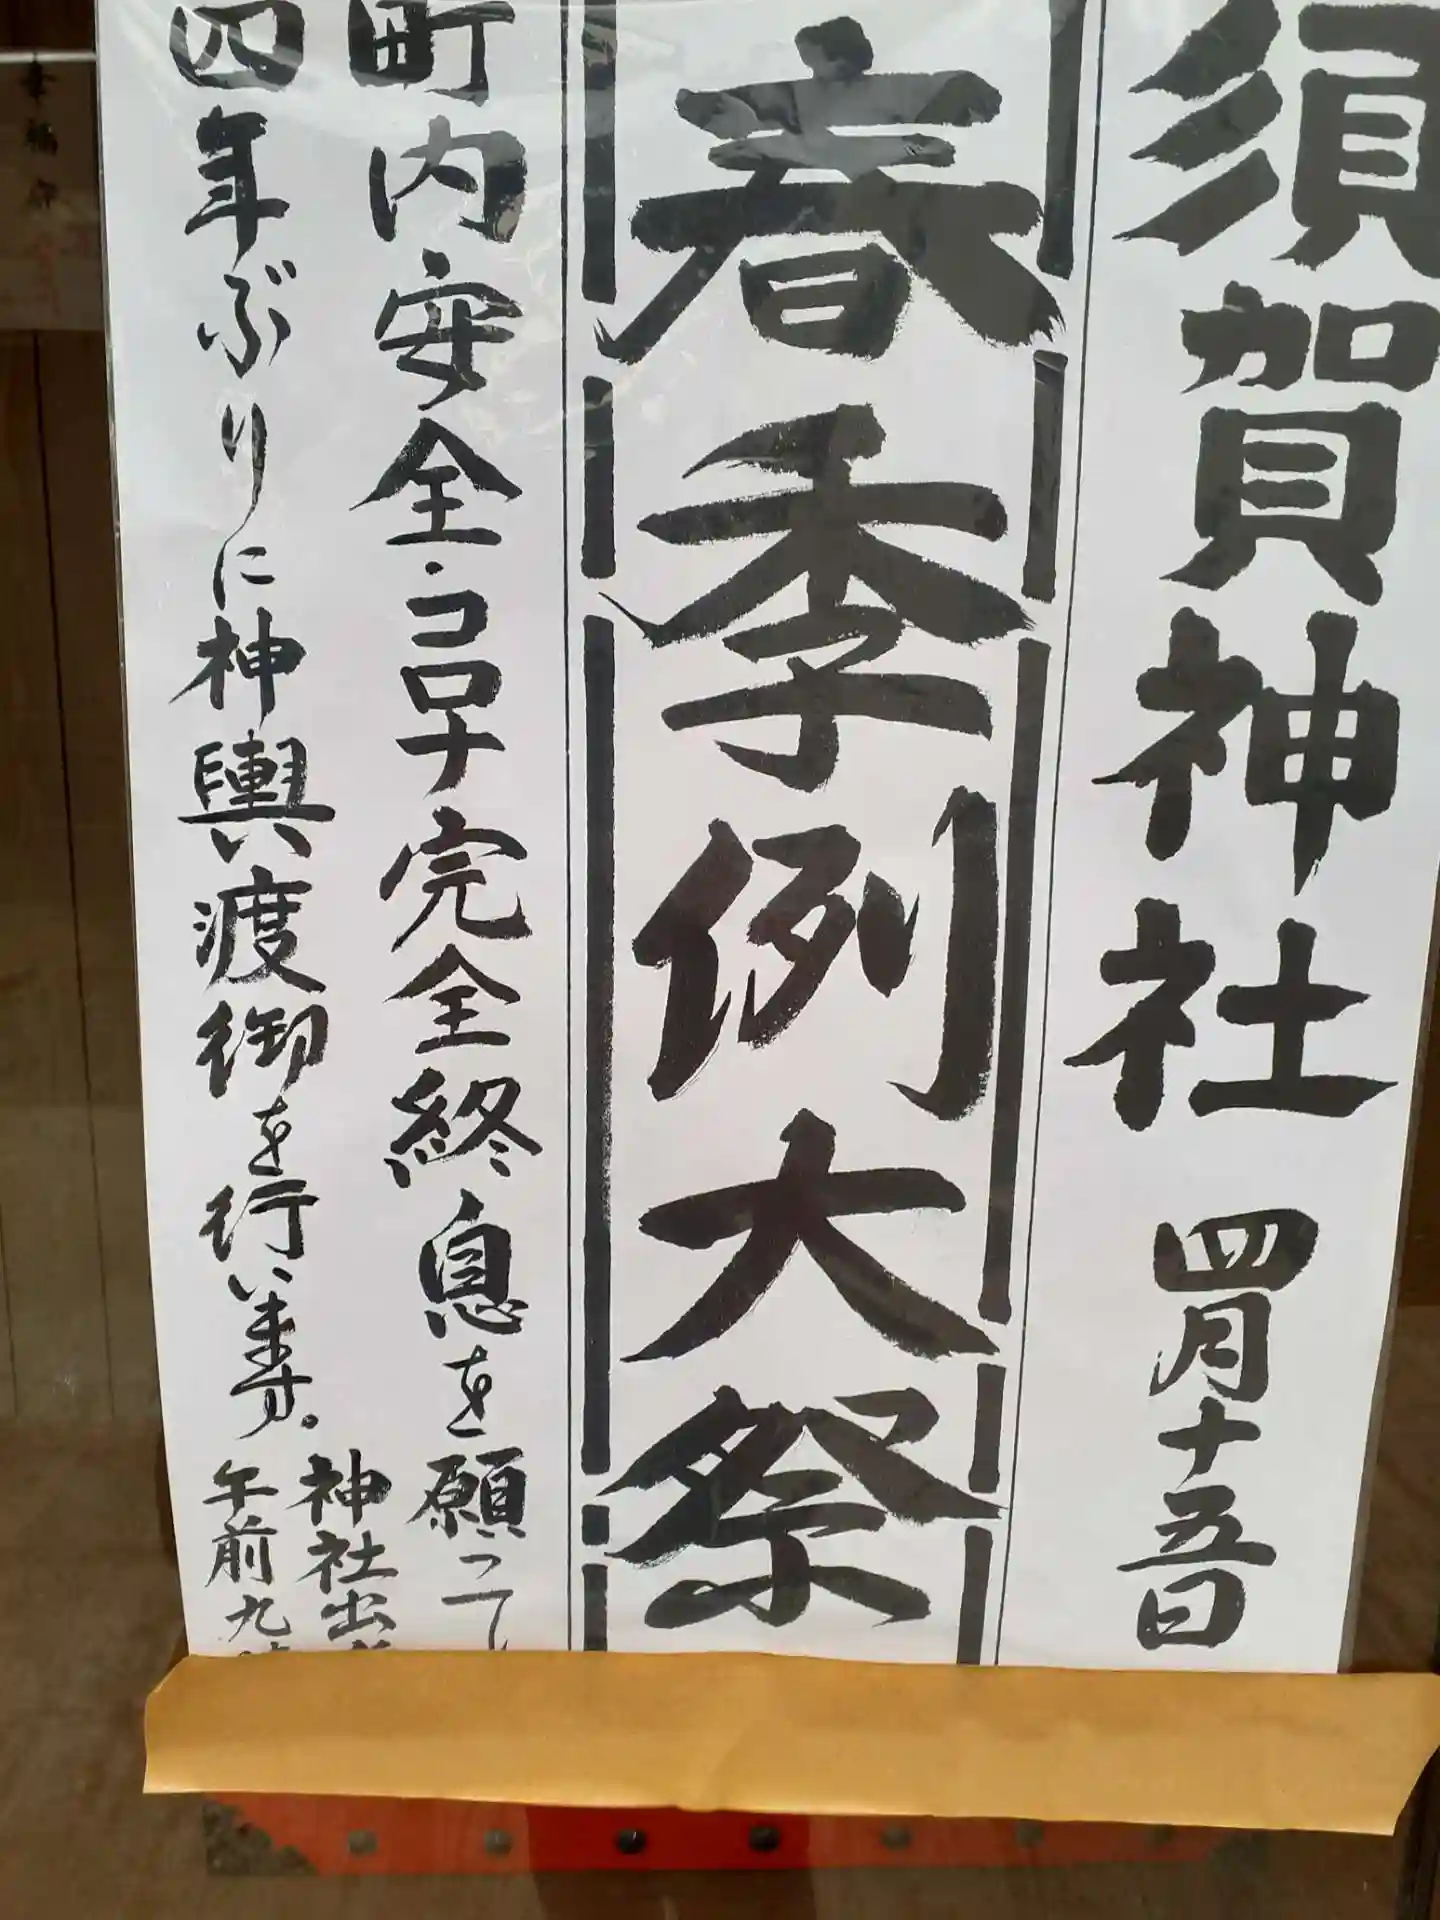 須賀神社 四月十五日
春季例大祭
町内安全・コロナ完全終息を願って
四年ぶりに神輿渡御を行います。
神社出
午前九